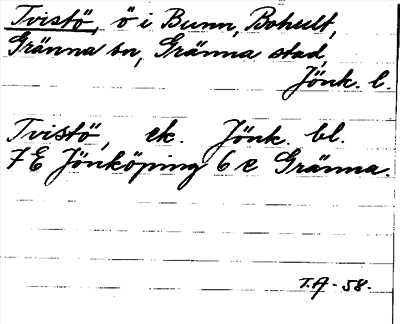 Tvistö, ö i Bunn, Bohult,
Gränna sn, Gränna stad,
Jönk. l.
Tvistö, ek. Jönk. bl.
7E Jönköping 6 e Gränna.
T.A - 58.